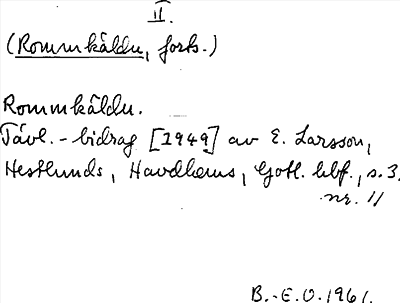 II.
(Rommkäldu, forts.)
Rommkäldu.
Tävl.-bidrag [1949] av E. Larsson,
Hestlunds, Havdhems, Gotl. hbf., s. 3.
nr. 11
B.-E.O. 1961.